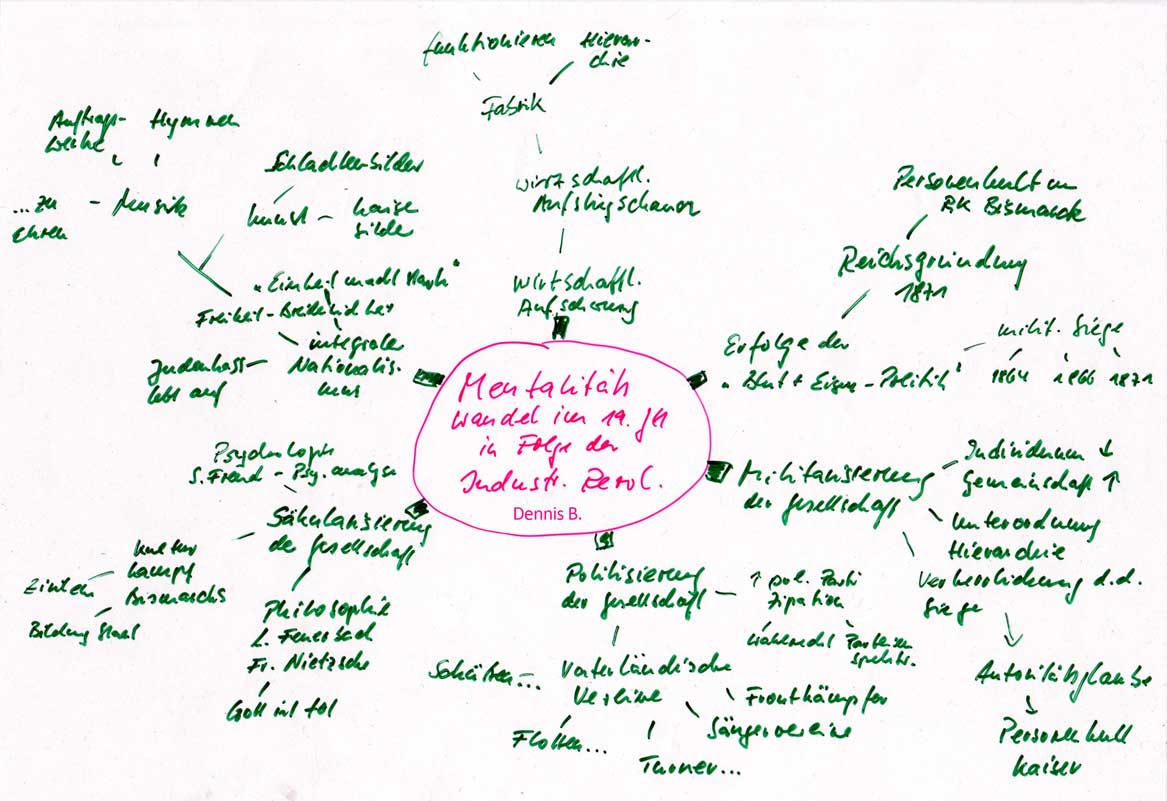 Mentalität
wandel im 19. JH
in Folge der
Industr. Revol.
Dennis B.
funktionieren
Hierar-
chie
Fabrik
wirtschaftl.
wirtschaftl.
Aufschwung
Personenkult um
RK Bismarck
Reichsgründung
1871
Erfolge der
"Blut + Eisen - Politik"
milit. Siege
1864 1866 1871
Militarisierung
der Gesellschaft
Individuum ↓
Gemeinschaft ↑
Unterordnung
Hierarchie
Verherrlichung d. d.
Siege
Autoritätsglaube
Personenkult
Kaiser
Politisierung
der Gesellschaft
↑ pol. Parti
zipation
Wahlrecht
Parteien
spektr.
Vaterländische
Vereine
Schützen...
Flotten...
Turner...
Sängervereine
Frontkämpfer
Säkularisierung
der Gesellschaft
Psychologie
S. Freud - Psy.analyse
Kultur
kampf
Bismarcks
Bildung Staat
Philosophie
L. Feuerbach
Fr. Nietzsche
Gott ist tot
integraler
Nationalis-
mus
Judenhass
lebt auf
"Einheit macht stark"
Freiheit - Brüderlichkeit
Kunst
Schlachtenbilder
Kaiser
bilder
Musik
Auftrags-
werke
Hymnen
...zu
Ehren